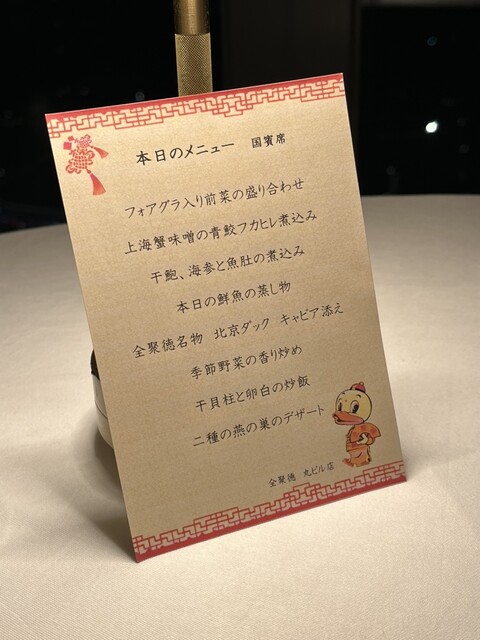 本日のメニュー 国賓席
フォアグラ入り前菜の盛り合わせ
上海蟹味噌の青鮫フカヒレ煮込み
干鮑、海参と魚肚の煮込み
本日の鮮魚の蒸し物
全聚徳名物 北京ダック キャビア添え
季節野菜の香り炒め
干貝柱と卵白の炒飯
二種の燕の巣のデザート
全聚徳 丸ビル店